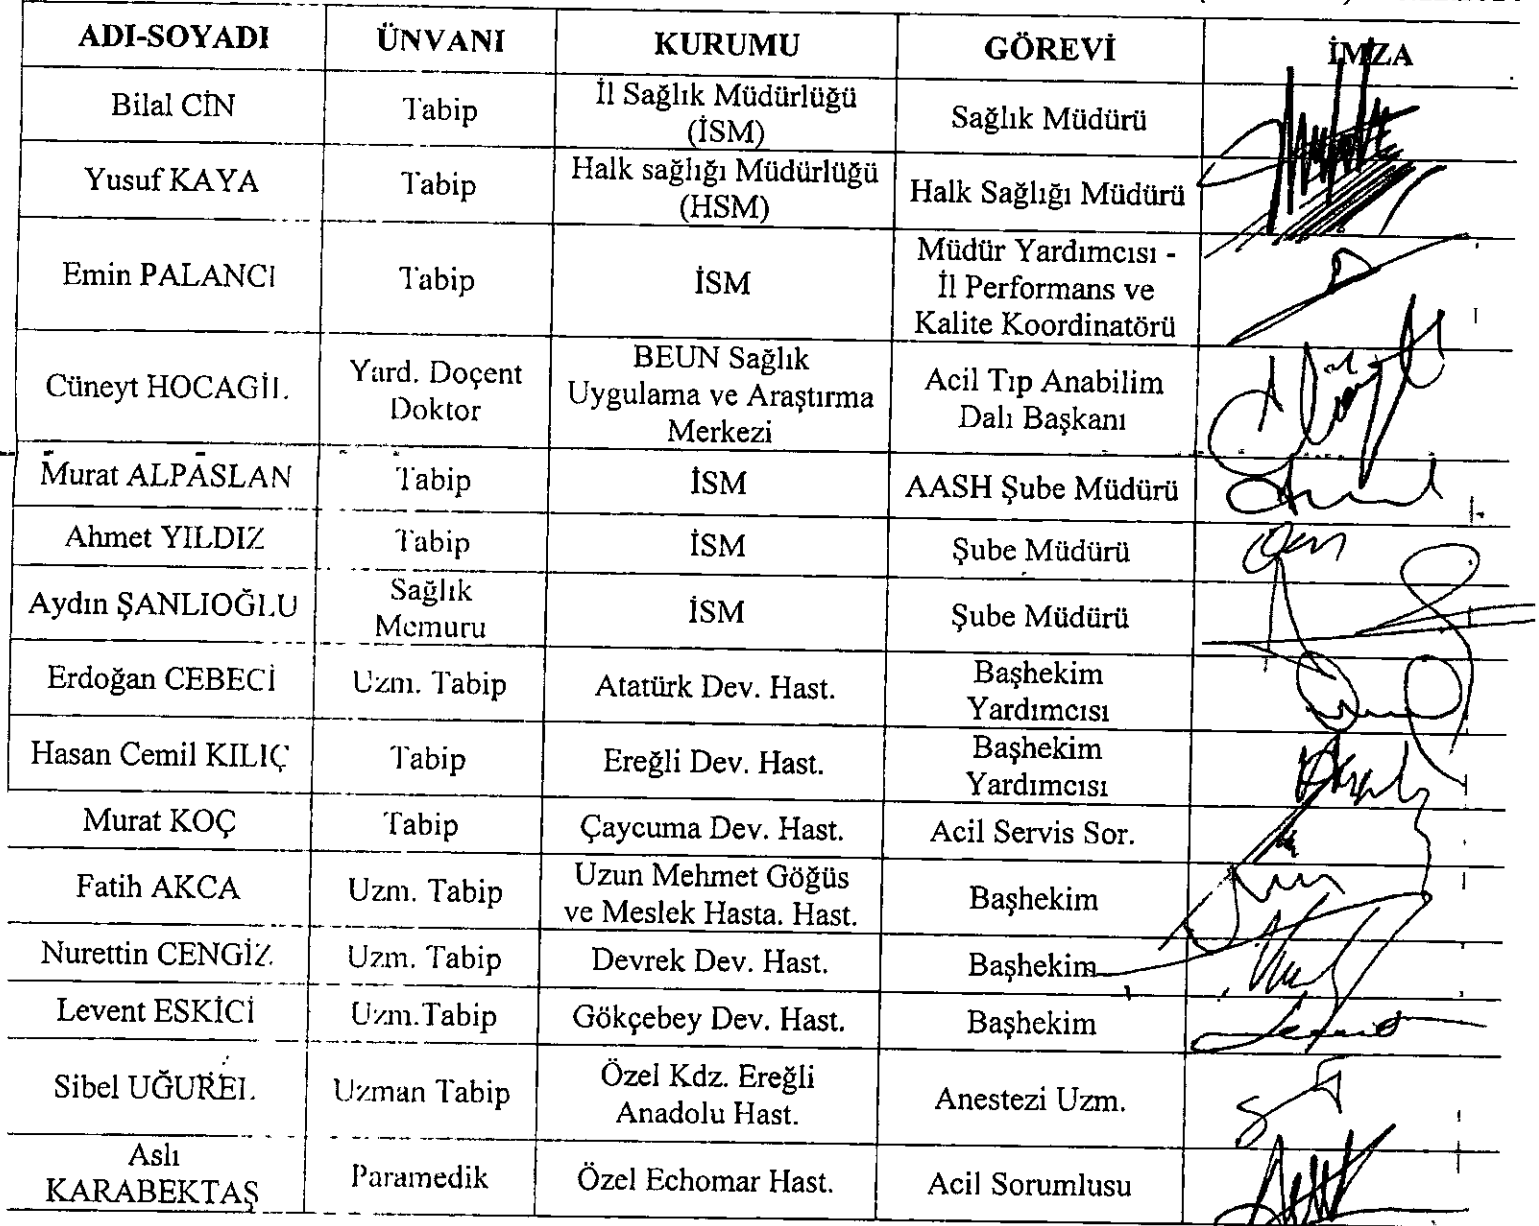 ADI-SOYADI ÜNVANI KURUMU GÖREVİ İMZA
Bilal CİN Tabip İl Sağlık Müdürlüğü
(İSM) Sağlık Müdürü
Yusuf KAYA Tabip Halk sağlığı Müdürlüğü
(HSM) Halk Sağlığı Müdürü
Emin PALANCI Tabip İSM Müdür Yardımcısı -
İl Performans ve
Kalite Koordinatörü
Cüneyt HOCAGİL Yard. Doçent
Doktor
BEUN Sağlık
Uygulama ve Araştırma
Merkezi
Acil Tıp Anabilim
Dalı Başkanı
Murat ALPASLAN Tabip İSM AASH Şube Müdürü
Ahmet YILDIZ Tabip İSM Şube Müdürü
Aydın ŞANLIOĞLU Sağlık
Memuru İSM Şube Müdürü
Erdoğan CEBECİ Uzm. Tabip Atatürk Dev. Hast. Başhekim
Yardımcısı
Hasan Cemil KILIÇ Tabip Ereğli Dev. Hast. Başhekim
Yardımcısı
Murat KOÇ Tabip Çaycuma Dev. Hast. Acil Servis Sor.
Fatih AKCA Uzm. Tabip Uzun Mehmet Göğüs
ve Meslek Hasta. Hast. Başhekim
Nurettin CENGİZ Uzm. Tabip Devrek Dev. Hast. Başhekim
Levent ESKİCİ Uzm.Tabip Gökçebey Dev. Hast. Başhekim
Sibel UĞUREL Uzman Tabip Özel Kdz. Ereğli
Anadolu Hast. Anestezi Uzm.
Aslı
KARABEKTAŞ Paramedik Özel Echomar Hast. Acil Sorumlusu